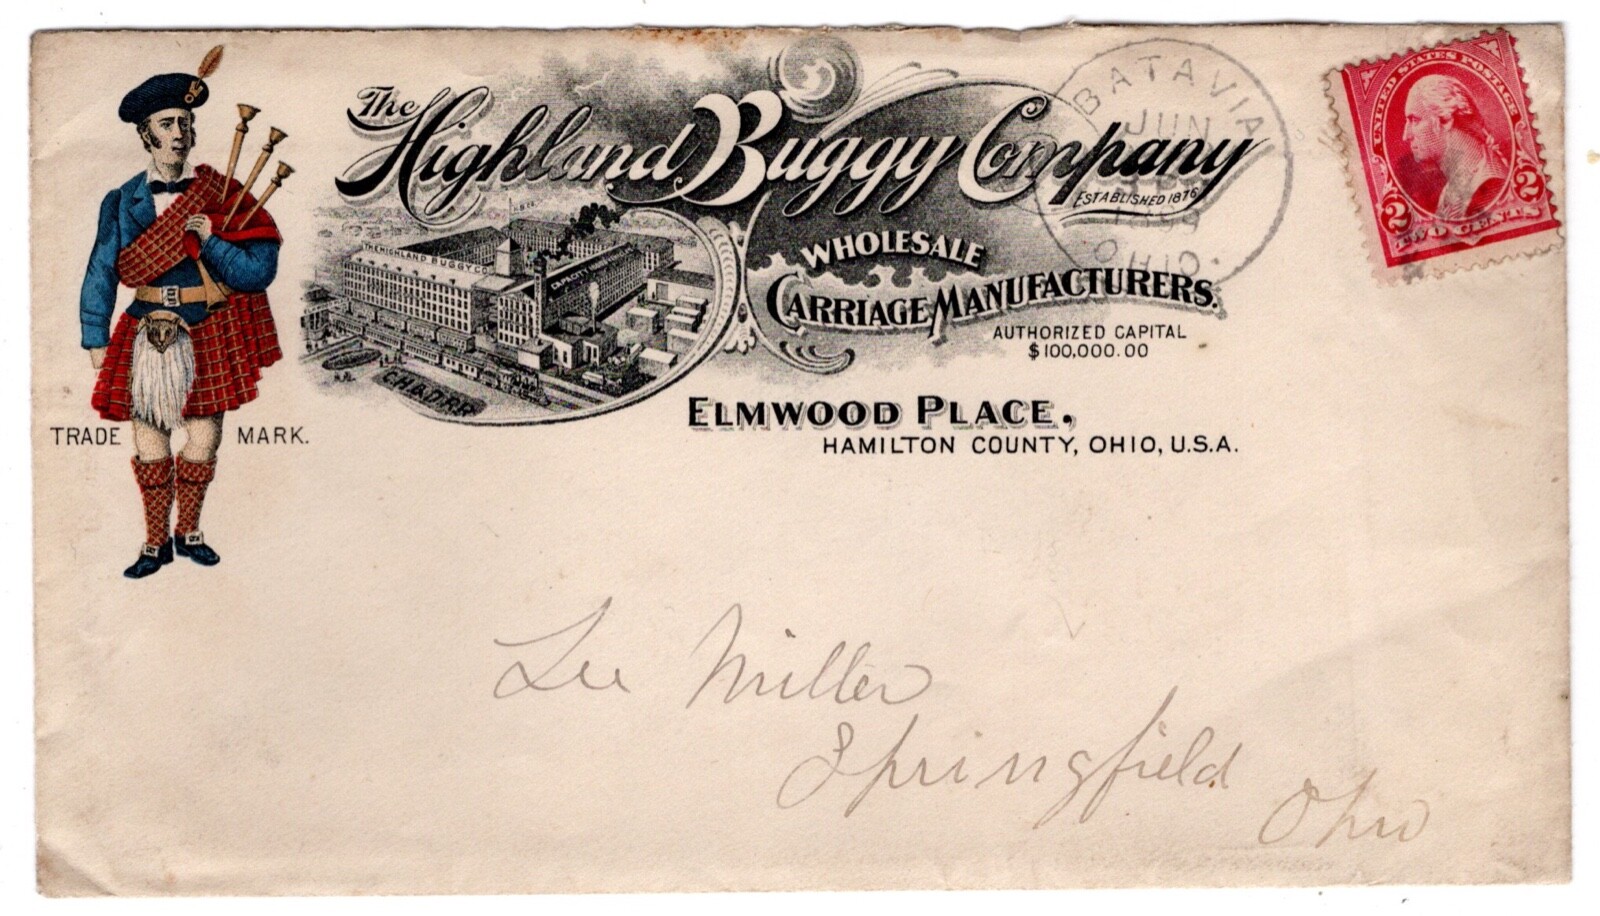 The Highland Buggy Company
ESTABLISHED 1876
WHOLESALE
CARRIAGE MANUFACTURERS.
AUTHORIZED CAPITAL
$100,000.00
ELMWOOD PLACE,
HAMILTON COUNTY, OHIO, U.S.A.
TRADE MARK.
THE HIGHLAND BUGGY CO.
C.H.& D.R.R.
BATAVIA
JUN
OHIO.
UNITED STATES POSTAGE
2 2
TWO CENTS
Lee Miller
Springfield
Ohio